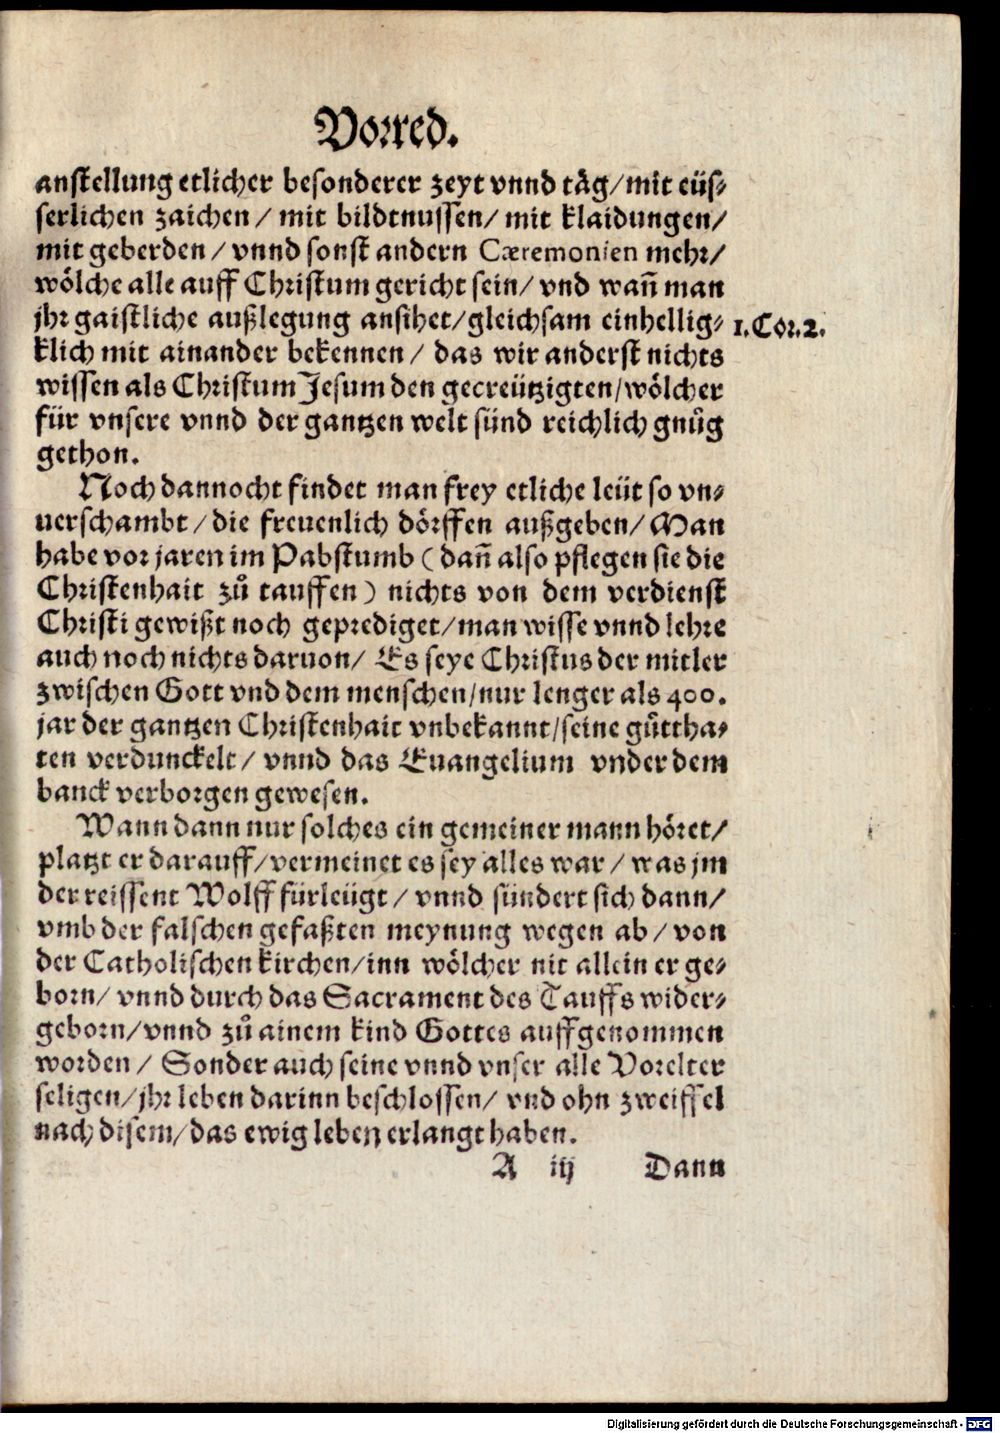 Vorred.
anstellung etlicher besonderer zeyt vnnd täg/mit eüs-
serlichen zaichen / mit bildtnussen/ mit klaidungen/
mit geberden / vnnd sonst andern Cæremonien mehr/
wölche alle auff Christum gericht sein/ vnd wañ man
jhr gaistliche außlegung ansihet/gleichsam einhellig-
klich mit ainander bekennen / das wir anderst nichts
wissen als Christum Jesum den gecreützigten/wölcher
für vnsere vnnd der gantzen welt sünd reichlich gnůg
gethon.
1.Cor.2.
Noch dannocht findet man frey etliche leüt so vn-
uerschambt / die freuenlich dörffen außgeben/ Man
habe vor jaren im Pabstumb ( dañ also pflegen sie die
Christenhait zů tauffen ) nichts von dem verdienst
Christi gewißt noch geprediget/man wisse vnnd lehre
auch noch nichts daruon/ Es seye Christus der mitler
zwischen Gott vnd dem menschen/nur lenger als 400.
jar der gantzen Christenhait vnbekannt/seine gůttha-
ten verdunckelt / vnnd das Euangelium vnder dem
banck verborgen gewesen.
Wann dann nur solches ein gemeiner mann höret/
platzt er darauff/vermeinet es sey alles war / was jm
der reissent Wolff fürleügt / vnnd sündert sich dann/
vmb der falschen gefaßten meynung wegen ab / von
der Catholischen kirchen/inn wölcher nit allein er ge-
born/ vnnd durch das Sacrament des Tauffs wider-
geborn/vnnd zů ainem kind Gottes auffgenommen
worden / Sonder auch seine vnnd vnser alle Vorelter
seligen/jhr leben darinn beschlossen/ vnd ohn zweiffel
nach disem/das ewig leben erlangt haben.
A iij Dann
Digitalisierung gefördert durch die Deutsche Forschungsgemeinschaft - DFG